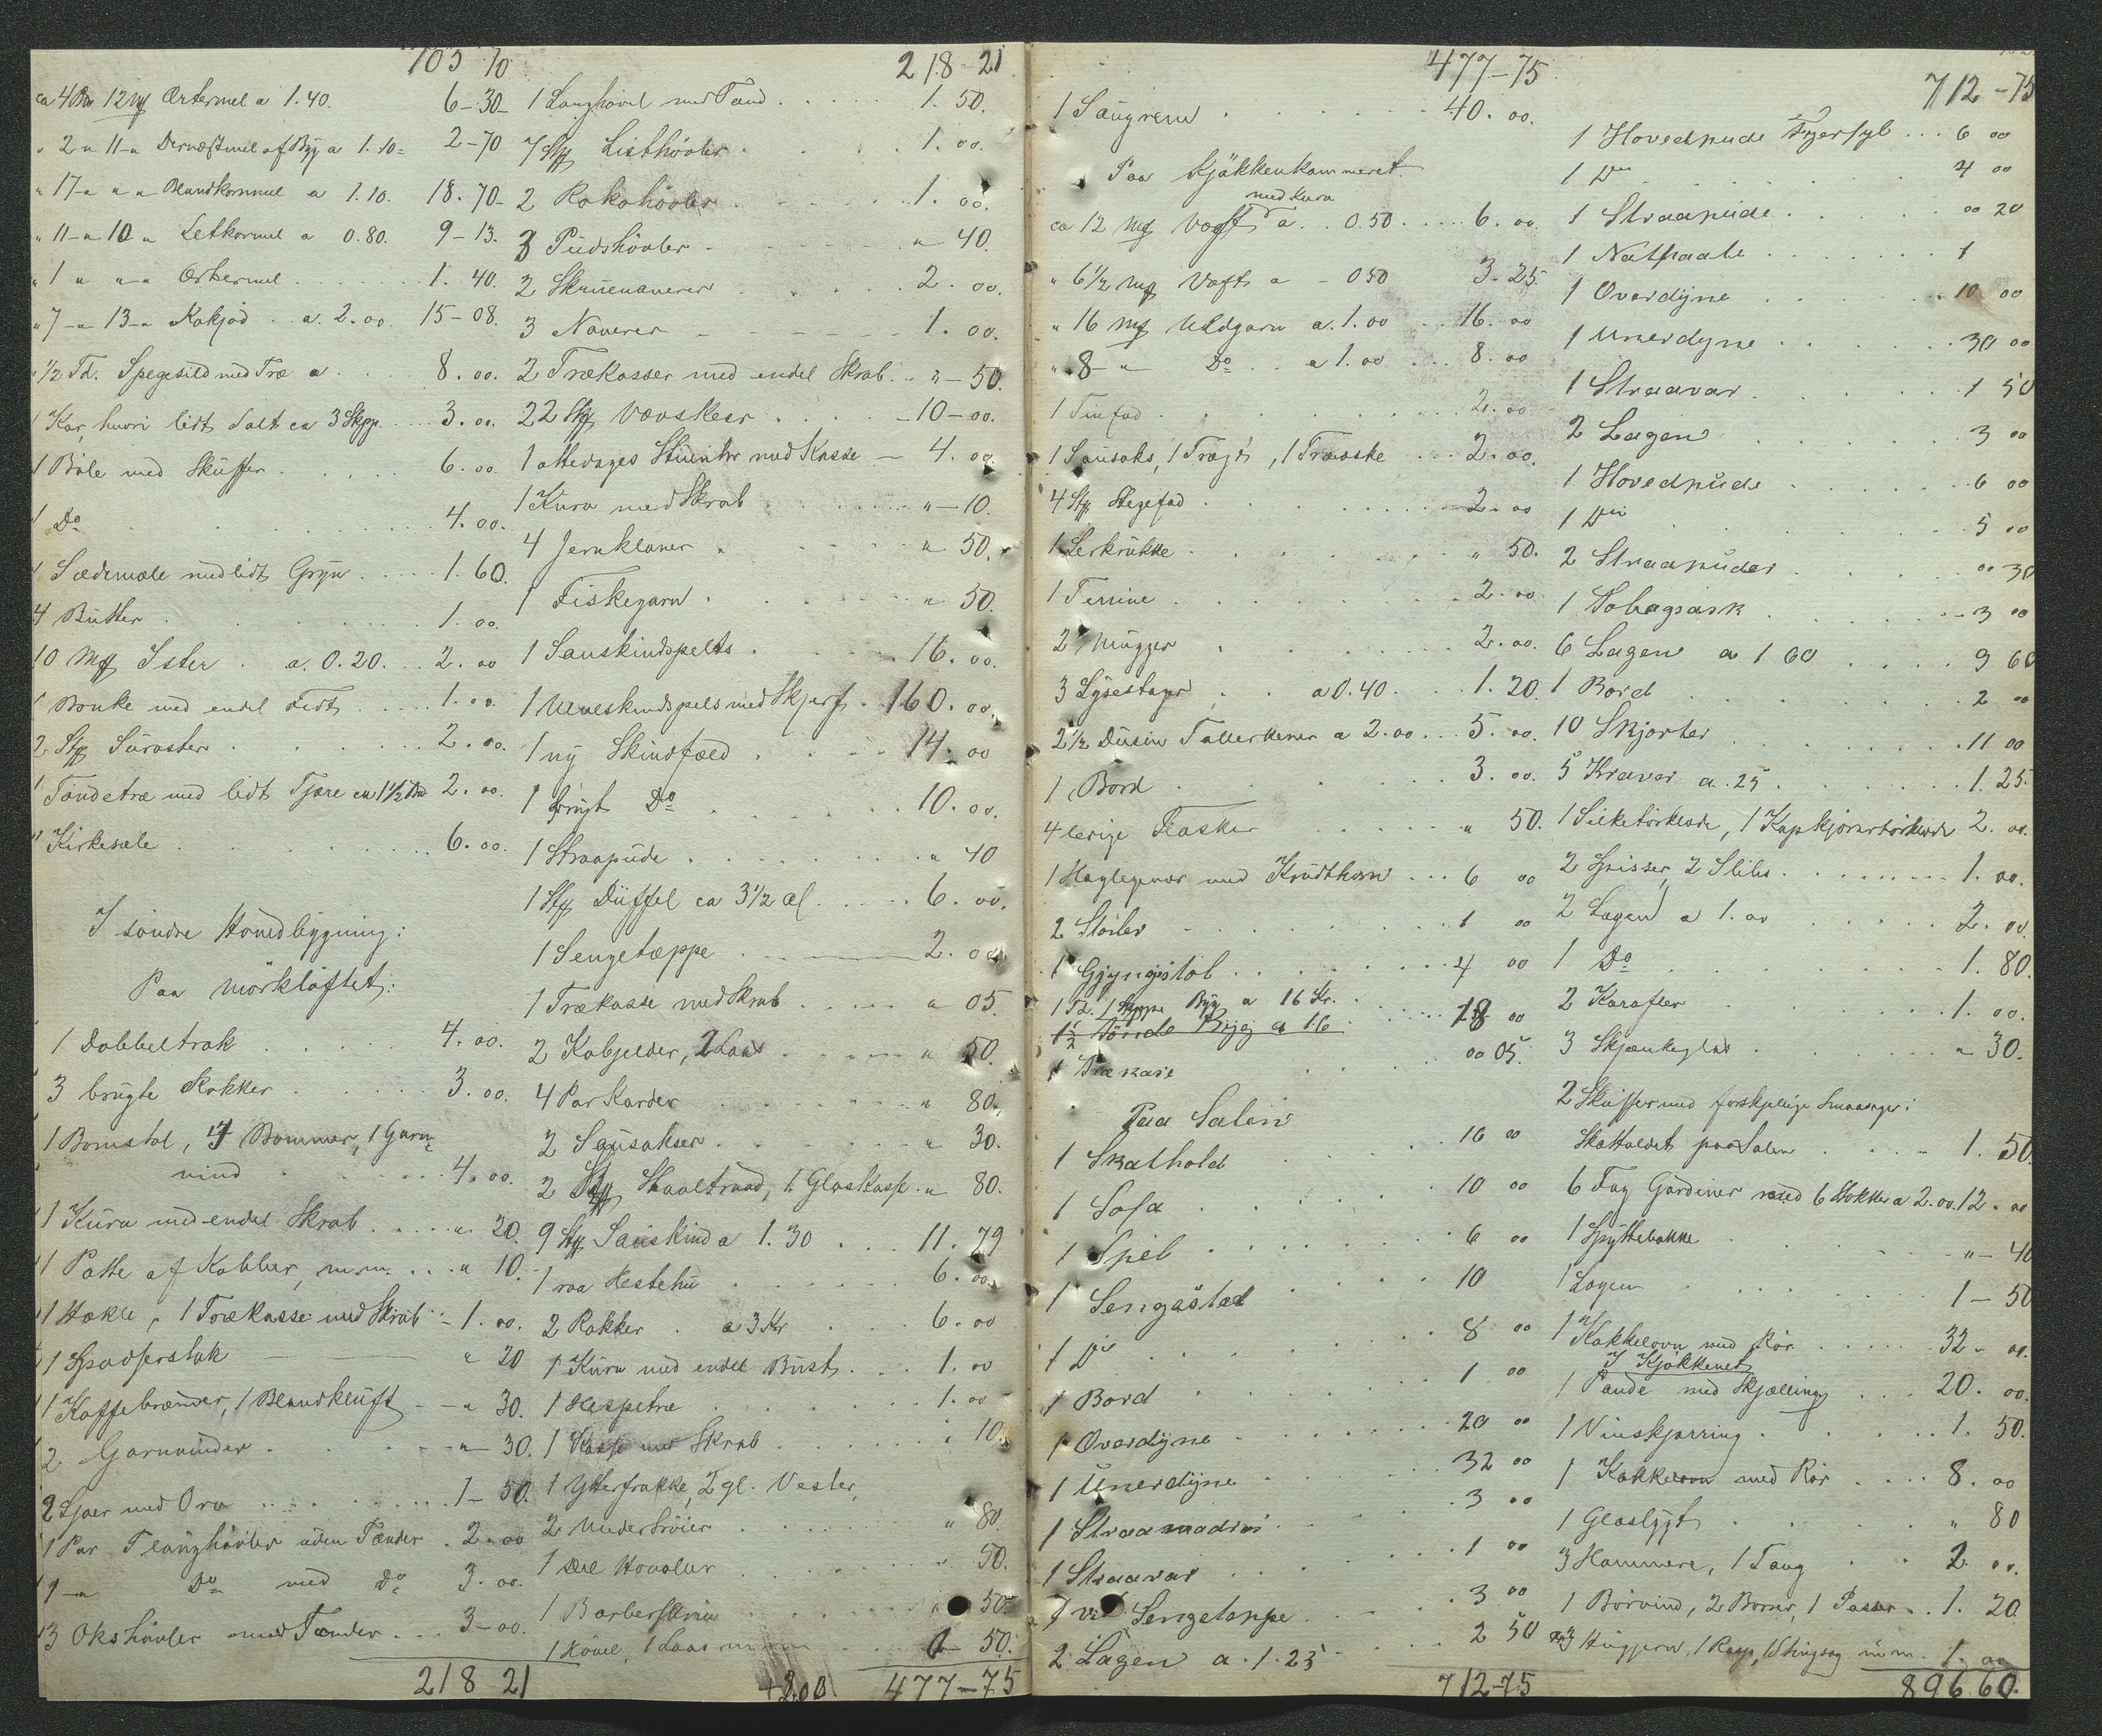 105 10
ca 4 Bm 12 Mk Ærtermel a 1.40. 6-30-
" 2 " 11 - " af Byg a 1.10 = 2-70
" 17 - " " " Blandkornmel a 1.10. 18.70-
" 11 - " 10 " Letkornmel a 0.80. 9-13.
" 1 " " - " Ærtermel 1.40.
" 7 - " 13 - " Kokjød a. 2.00. 15-08.
" 1/2 Td. Spegesild med Træ a 8.00.
1 Kar, hvori lidt Salt ca 3 Skpp. 3.00.
1 Bale med Skuffer 6.00
1 Do 4.00.
1 Sædemale med lidt Gryn 1.60.
4 Butter 1.00.
10 Mk Ister a. 0.20. 2.00
1 Bonke med endel Fedt 1.00.
2 Stk Suroster 2.00.
1 Tøndetræ med lidt Tjære ca 1 1/2 2.00.
1 Kirkesæle 6.00.
I søndre Hovedbygning:
Paa Mørkloftet:
1 Dobbeltrok 4.00.
3 brugte Rokker 3.00.
1 Bomstol, 4 Bommer, 1 Garn-
vind 4.00.
1 Kurv med endel Skrab " 20.
1 Potte af Kobber, m.m. " 10.
1 Hækle, 1 Trækasse med Skrab 1.00.
1 Spadserstok " 20
1 Kaffebrænder, 1 " 30.
2 Garnvinder " 30.
2 med Orv 1-50.
1 Par uden Tænder 2.00
1 - " Do med Do 3.00.
3 Okshøvler med Tænder 3-00.
218 21
218-21
1 Langhøvel med Tand 1.50.
7 Stk Listhøvler 1.00.
2 Rokohøvler 1.00.
3 Pudshøvler " 40.
2 Skruenaverer 2.00.
3 Naverer 1.00.
2 Trækasser med endel Skrab. " - 50.
22 Stk Vævskeer 10-00.
1 ottedages Stueuhr med Kasse - 4.00
1 Kurv med Skrab " - 10.
4 Jernklaver " 50.
1 Fiskegarn " 50.
1 Sauskindspelts 16.00.
1 Ulveskindspels med Skjerf 160.00.
1 ny Skindfæld 14.00
1 brugt Do 10.00.
1 Straapude " 40
1 Stk Düffel ca 3 1/2 al 6.00.
1 Sengetæppe 2.00
1 Trækasse med Skrab " 05.
2 Kobjelder, 2 Laas " 50.
4 Par Karder " 80.
2 Sausakser " 30.
2 Stk Staaltraad, 1 Glaskasse " 80.
9 Stk Sauskind a 1.30 11.79
1 raa Hestehu 6.00
2 Rokker a 3 Kr 6.00
1 Kurv med endel Bust 1.00
1 Hespetræ 1.00
1 Kasse med Skrab " 10.
1 Ytterfrakke, 2 gl. Vester,
2 Undertrøier " 80
1 Del Hovslur " 50.
1 " 50.
1 Høvel, 1 Laas m.m. 50.
477-75
477-75
1 Saugrem 40.00.
Paa Kjøkkenkammeret
med Kurv
ca 12 Mk Vœft a 0.50 6.00
" 6 1/2 Mk Vœft a - 0 50 3.25.
" 16 Mk Uldgarn a. 1.00 16.00
" 8 - " Do a 1.00 8.00
1 Tinfad 2.00
1 Sausaks, 1 , 1 2.00.
4 Stk Stegefad 2.00
1 Lerkrukke " 50.
1 Terrine 2.00
2 Mugger 2.00.
3 Lysestager a 0.40. 1.20.
2 1/2 Dusin Tallerkener a 2.00 5.00.
1 Bord 3.00.
4 ledige Flasker " 50.
1 Haglegevær med Krudthorn 6 00
2 Støvler 1 00
1 Gjyngestol 4 00
1 Td. 1 Skjeppe Byg a 16 Kr. 18 00
1 1/2 Tønde Byg a 16
1 Trækase 00 05.
Paa Salen
1 Skathold 16 00
1 Sofa 10 00
1 Spel 6 00
1 Sengasted 10
1 Do 8 00
1 Bord 1 00
1 Overdyne 20 00
1 Unerdyne 32 00
1 Straamadras 3 00
1 Straavar 1 00
1 Sengeteppe 3 00
2 Lagen a. 1.25 2 50
712-75
712-75
1 Hovedpude 6 00
1 Do 4 00
1 Straapude 00 20
1 1
1 Overdyne 10 00
1 Unerdyne 30 00
1 Straavar 1 50
2 Lagen 3 00
1 Hovedpude 6 00
1 Do 5 00
2 Straapuder 00 30
1 3 00
6 Lagen a 1 60 9 60
1 Bord 2 00
10 Skjorter 11 00
5 Kraver a. 25 1.25.
1 Silketørklæde, 1 2.00.
2 Spisser, 2 Slibs 1.00.
2 Lagen a 1.00 2.00.
1 Do 1.80.
2 Karafler 1.00.
3 Skjænkeglas " 30.
2 Skuffer med forskjellige Smaasager i
Skatholdet paa Salen 1.50.
6 Fag Gardiner med 6 Stokker a 2.00. 12.00
1 Spyttebakke " - 40
1 Lagen 1-50
1 Kakkelovn med Rør 32-00.
I Kjøkkenet
1 Pande med Skjælling 20.00.
1 Vinskjærring 1.50.
1 Kakkelovn med Rør 8.00
1 Glaslygt " 80
3 Hammere, 1 Tang 2.00.
1 Borvind, 2 Borer, 1 Passer 1.20
3 Hugjern, 1 Rasp, 1 Stingsag m.m. 1.00
896 60.